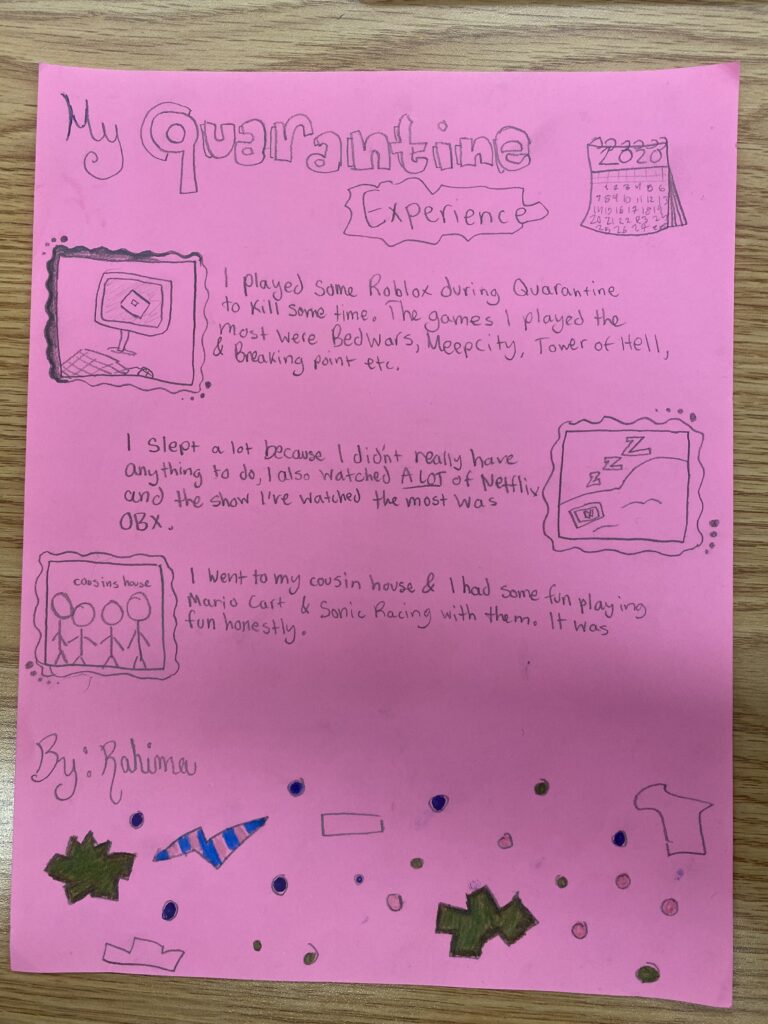 My Quarantine
Experience
2020
1 2 3 4 5 6
7 8 9 10 11 12 13
14 15 16 17 18 19
20 21 22 23 24
25 26 27
I played some Roblox during Quarantine
to kill some time. The games I played the
most were BedWars, Meepcity, Tower of Hell,
& Breaking point etc.
I slept a lot because I didn't really have
anything to do, I also watched A LOT of Netflix
and the show I've watched the most was
OBX.
Z Z Z
cousins house
I went to my cousin house & I had some fun playing
Mario Cart & Sonic Racing with them. It was
fun honestly.
By: Rahima